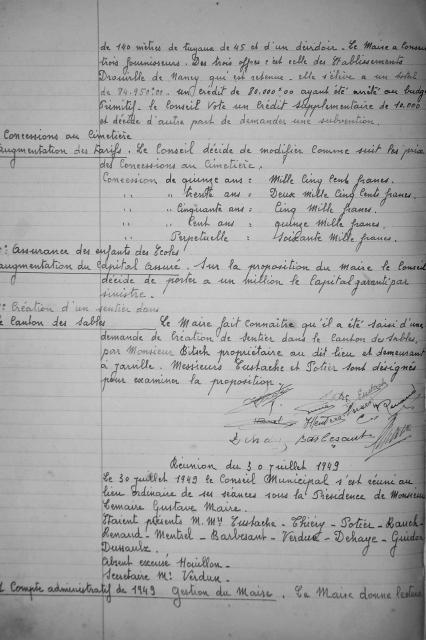 de 140 mètres de tuyaux de 45 et d'un dévidoir. Le Maire a consulté
trois fournisseurs. Des trois offres c'est celle des Etablissements
Drouville de Nancy qui est retenue. elle s'élève a un total
de 84.950.00. un crédit de 80.000.00 ayant été
Primitif. le Conseil Vote un crédit supplémentaire de 10.000
et décide d'autre part de demander une subvention.
Concessions au Cimetière
augmentation des Tarifs. Le Conseil décide de modifier comme suit les prix
des Concessions au Cimetière.
Concession de quinze ans = Mille Cinq Cents francs.
" " trente ans = Deux Mille Cinq Cents francs.
" " Cinquante ans = Cinq Mille francs.
" " Cent ans = quinze Mille francs.
" " Perpetuelle = Soixante Mille francs.
Assurance des enfants des Ecoles
augmentation du Capital assuré. Sur la proposition du Maire le Conseil
décide de porter a un million le Capital garanti par
sinistre.
Création d'un sentier dans
le canton des sables Le Maire fait connaitre qu'il a été saisi d'une
demande de Création de sentier dans le canton des sables,
par Monsieur Bitsch propriétaire au dit lieu et demeurant
à Jarville. Messieurs Eustache et Potier sont désignés
pour examiner la proposition.
Eustach
Barbesant
Réunion du 30 juillet 1949
Le 30 juillet 1949 le Conseil Municipal s'est réuni au
lieu ordinaire de ses séances sous la Présidence de Monsieur
Lemaire Gustave Maire.
Etaient présents M.Mrs Eustache - Thiéry - Potier - Rauch -
Renard - Mentrel - Barbesant - Verdun - Dehaye - Guidon
Dussaulx.
Absent excusé Houillon.
Secretaire Mr Verdun.
Compte administratif de 1949 Gestion du Maire. Le Maire donne lecture